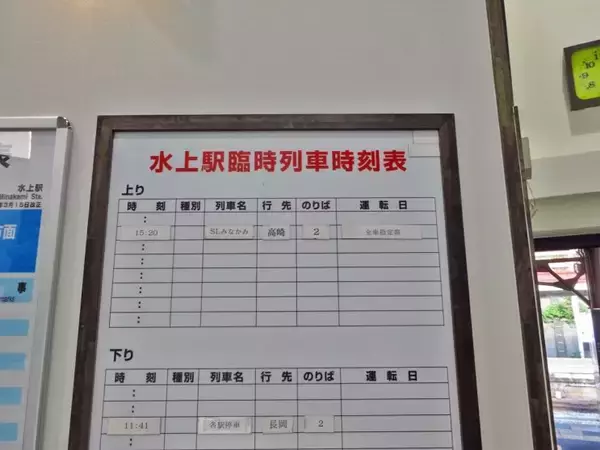 水上駅臨時列車時刻表
上り
時 刻 種別 列車名 行 先 のりば 運 転 日
:
15:20 SLみなかみ 高崎 2 全車指定席
:
:
:
:
:
下り
時 刻 種別 列車名 行 先 のりば 運 転 日
:
:
11:41 各駅停車 長岡 2
:
表
水上駅
Minakami Sta.
面
事
10
9
8